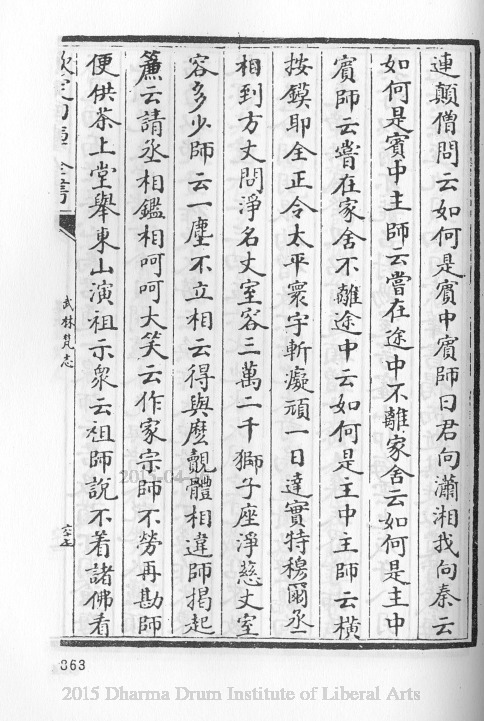 連顛僧問云如何是賓中賓師曰君向瀟湘我向秦云
如何是賓中主師云嘗在途中不離家舍云如何是主中
賓師云嘗在家舍不離途中云如何是主中主師云橫
按鏌耶全正令太平寰宇斬癡頑一日達實特穆爾丞
相到方丈問淨名丈室容三萬二千獅子座淨慈丈室
容多少師云一塵不立相云得與麽覿體相違師揭起
簾云請丞相鑑相呵呵大笑云作家宗師不勞再勘師
便供茶上堂舉東山演祖示衆云祖師說不着諸佛看
欽定四庫全書
武林梵志
863
2015 Dharma Drum Institute of Liberal Arts